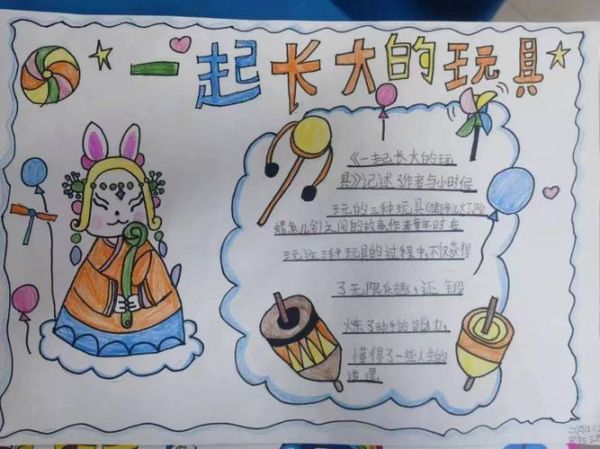 一起长大的玩具
《一起长大的玩
具》记述了作者与小时候
玩的三种玩具
之间的故事作者童年时在
玩这三种玩具的过程中,不仅获得
了无限乐趣,还锻
炼了动手的能力。
懂得了一些人生的
道理